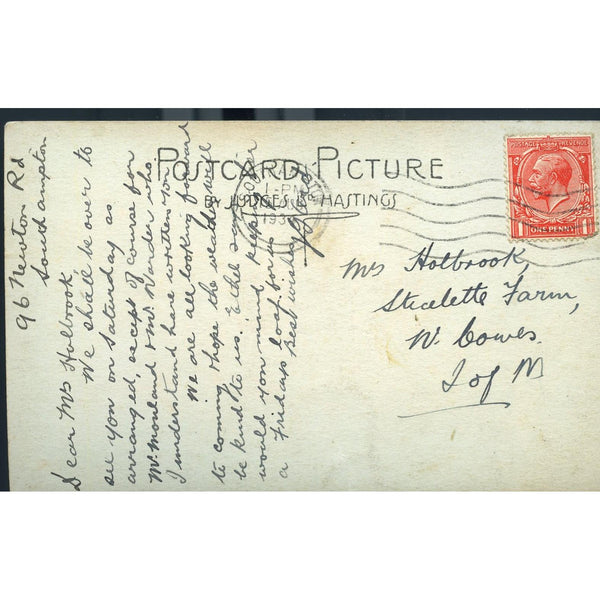 96 Newton Rd
Southampton
Dear Mrs Holbrook
We shall be over to
see you on Saturday as
arranged, except of course for
Mr. Morland & Mr. Warder who
I understand have written you
We are all looking forward
to coming & hope the weather will
be kind to us. Ethel says
would you mind keeping
a loaf for us
Fridays Best wishes
POSTCARD PICTURE
BY JUDGES LD HASTINGS
1-PM
193
POSTAGE REVENUE
ONE PENNY
Mrs Holbrook,
Sticelette Farm,
W. Cowes.
I of W